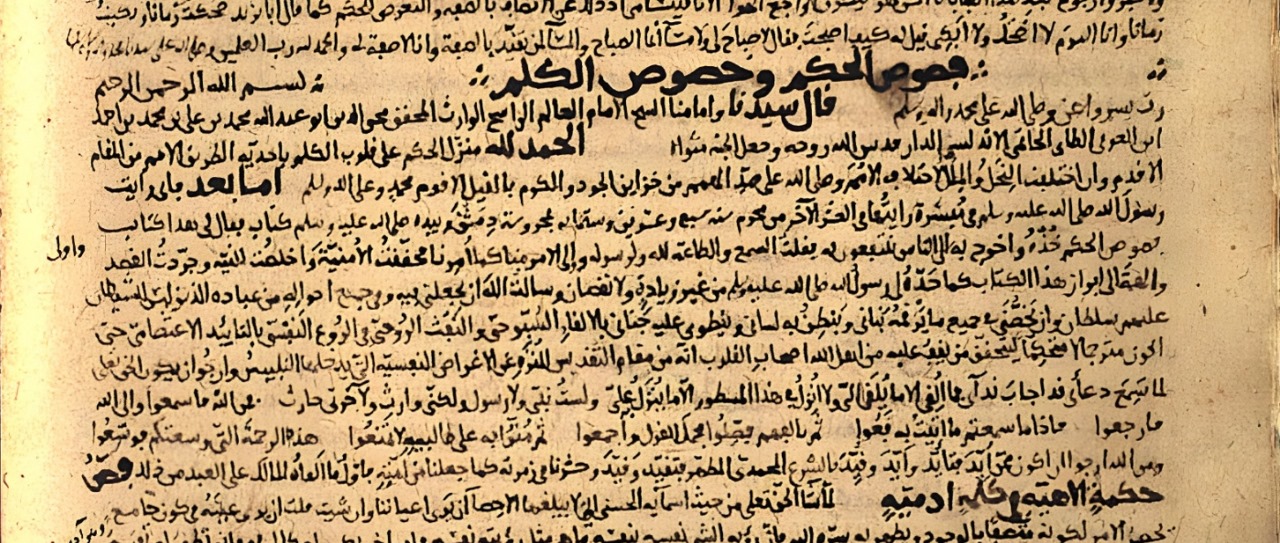 زمانا وانا اليوم لا اضحك ولا أبكي قيل له كيف اصبحت فقال لا صباح لي ولا مسآ أنما الصباح والمسآ لمن تقيّد بالصفة وانا لا صفة لي والحمد لله رب العلمين
فصوص الحكم وخصوص الكلم بسم الله الرحمن الرحيم
رب يسر واعن وصلى الله على محمد واله وسلم قال سيدنا وامامنا الشيخ الامام العالم الراسخ الوارث المحقق محي الدين ابو عبد الله محمد بن علي بن محمد بن احمد
ابن العربي الطاي الحاتمي الاندلسي قدس الله روحه وجعل الجنة مثواه الحمد لله منزّل الحكم على قلوب الكلم باحدية الطريق الامم من المقام
الاقدم وان اختلفت النِحَلُ والمِلَلُ لاختلاف الأُمَم وصلى الله على ممد الهمم من خزاين الجود والكرم بالقيل الاقوم محمد وعلى اله وسلم اما بعد فاني رايت
رسول الله صلى الله عليه وسلم في مُبَشِّرة أريتها في العشر الآخر من محرم سنه سبع وعشرين وستمايه بمحروسة دمشق وبيده صلى الله عليه وسلم كتاب فقال لي هذا كتاب
فصوص الحكم خُذْهُ واخرج به الى الناس ينتفعون به فقلت السمع والطاعة لله ولرسوله وأولي الامر منا كما أُمِرنا فحققتُ الأمنيّة وأخلصتُ النيّة وجرّدتُ القصد
واولى
والهمّة الى ابراز هذا الكتاب كما حدّه لي رسول الله صلى الله عليه وسلم من غير زيادة ولا نقصان وسالت الله أن يجعلني فيه وفي جميع احوالي من عباده الذين ليس للشيطان
عليهم سلطان وان يخصّني في جميع ما يرقمه بناني وينطق به لساني وينطوي عليه جَناني بالالقاء السُبّوحي والنَفث الرُوحي في الرُوع النفسي بالتاييد الاعتصامي حتى
اكون مترجما لا متحكما ليتحقق من يقف عليه من اهل الله اصحاب القلوب انه من مقام التقديس المنزّه عن الاغراض النفسيّة التي يدخلها التلبيس وارجُو ان يكون الحق تعلى
لما سَمِعَ دعآئي قد اجاب ندآئي فما أُلقي الا ما يُلقَى اليّ ولا أُنزِلُ في هذا المسطور الا ما يُنزَّل به عليّ ولستُ بنبي ولا رسول ولكني وارث ولآخرتي حارث فمن الله فاسمعوا والى الله
فارجعوا فاذا ما سمعتم ما اتيتُ به فَعُوا ثم بالفهم فصّلوا مجمل القول وأجمعوا ثم مُنّوا به على طالبيه لا تمنعُوا هذه الرحمة التي وسعتكم فوسّعوا
ومن الله ارجو ان اكون ممن أُيِّد فتأيَّد وأيّد وقُيِّد بالشرع المحمدي المطهر فتقيّد وقيّد وحشرنا في زمرته كما جعلنا من أمّته فأول ما القاه المالك على العبد من ذلك فصّ
حكمةٍ الاهيّه في كلمةٍ ادميّه لما شآ الحق تعلى من حيث اسمآيه الحسنى التي لا يبلغها الاحصآ أن يرى اعيانها وان شيت قلت أن يرى عينه في كون جامع
يحصر الامر لكونه متصفا بالوجود ويظهر به سره اليه فان رؤية الشي نفسه بنفسه ما هي مثل رؤيته نفسه